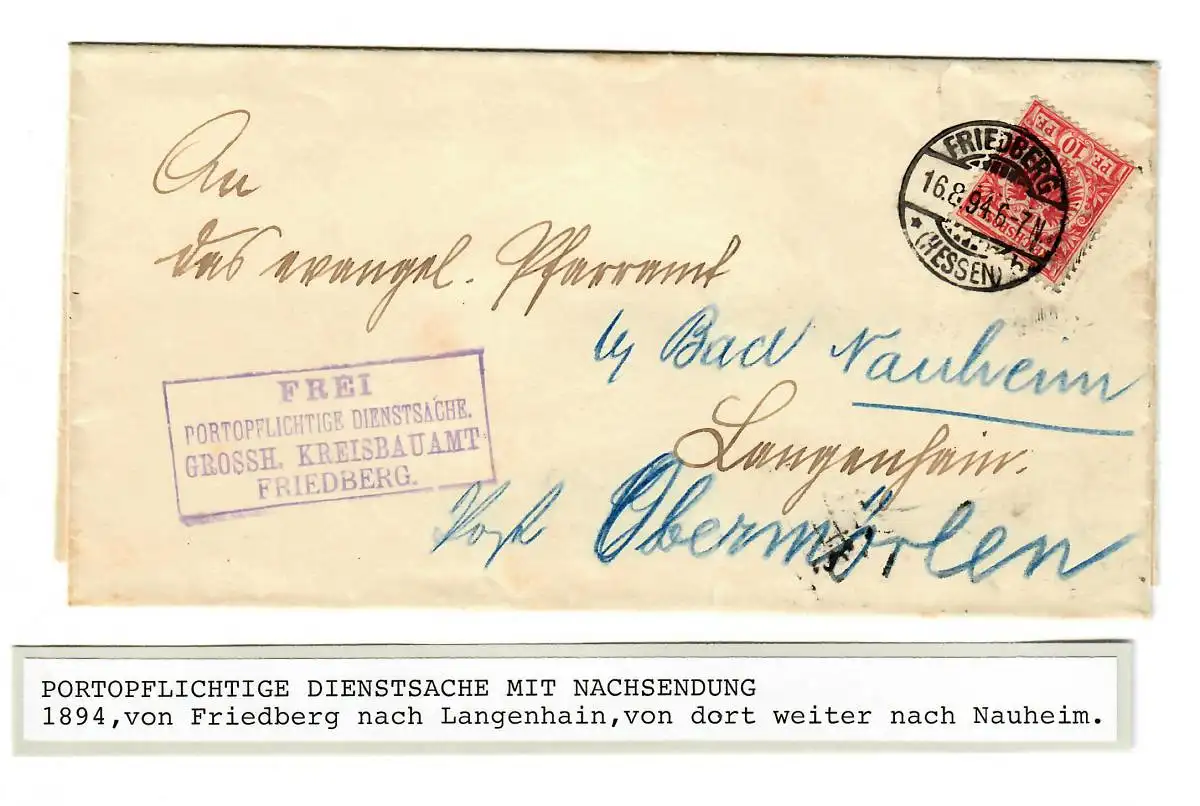 An
das evangel. Pfarramt
b/ Bad Nauheim
Langenhain.
Post Obermörlen
FREI
PORTOPFLICHTIGE DIENSTSACHE.
GROSSH. KREISBAUAMT
FRIEDBERG.
10 PF. 10 PF.
FRIEDBERG
16.8.94.6-7N.
* (HESSEN)
PORTOPFLICHTIGE DIENSTSACHE MIT NACHSENDUNG
1894,von Friedberg nach Langenhain,von dort weiter nach Nauheim.